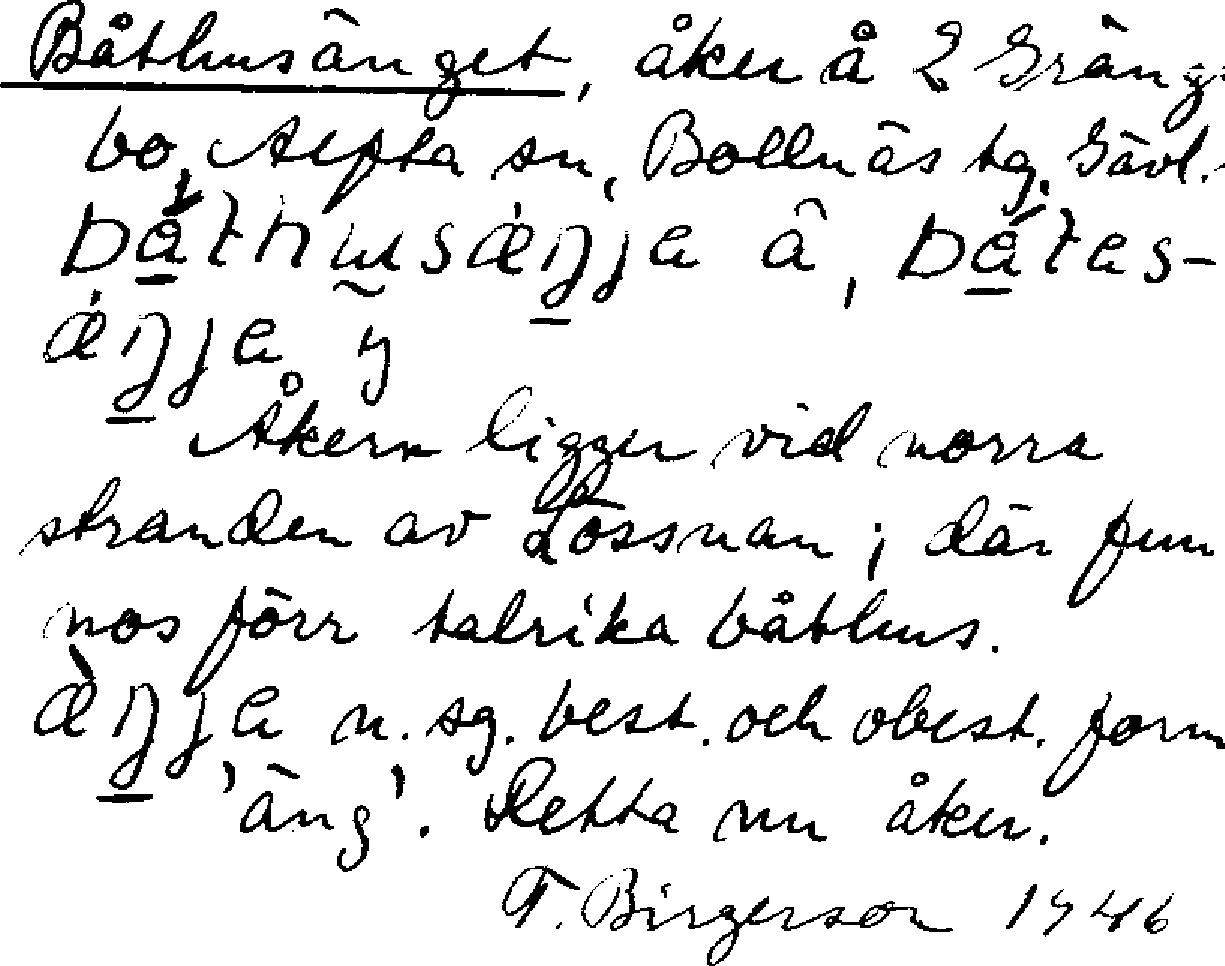 Båthusänget, åker å 2 Gräng
bo, Alfta sn, Bollnäs tg, Gävl.
bå̱thusæŋja â, bå̱tas-
æŋja y
Åkern ligger vid norra
stranden av Lössnan; där fun
nos förr talrika båthus.
æ̀ŋja n. sg. best. och obest. form
'äng'. Detta nu åker.
F. Birgerson 1946